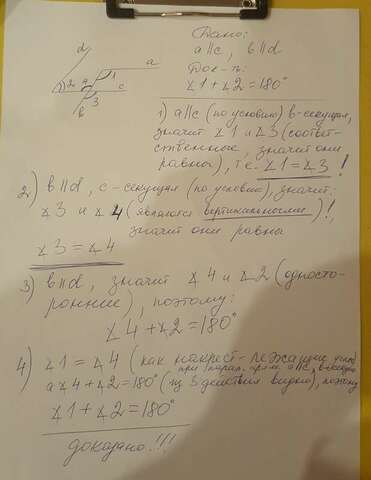 Дано:
a||c, b||d
Док-ть:
∠1+∠2=180°
d
a
1
2
4
c
3
b
1) a||c (по условию) b-секущая,
значит ∠1 и ∠3 (соответ-
ственные, значит они
равны), т.е. ∠1=∠3!
2.) b||d, c-секущая (по условию), значит:
∠3 и ∠4 (являются вертикальными)!,
значит они равны
∠3=∠4
3) b||d, значит ∠4 и ∠2 (односто-
ронние), поэтому:
∠4+∠2=180°
4) ∠1=∠4 (как накрест-лежащие углы
при парал. прям. a||c, b-секущ
а ∠4+∠2=180° (из 3 действия видно), поэтому
∠1+∠2=180°
доказано!!!